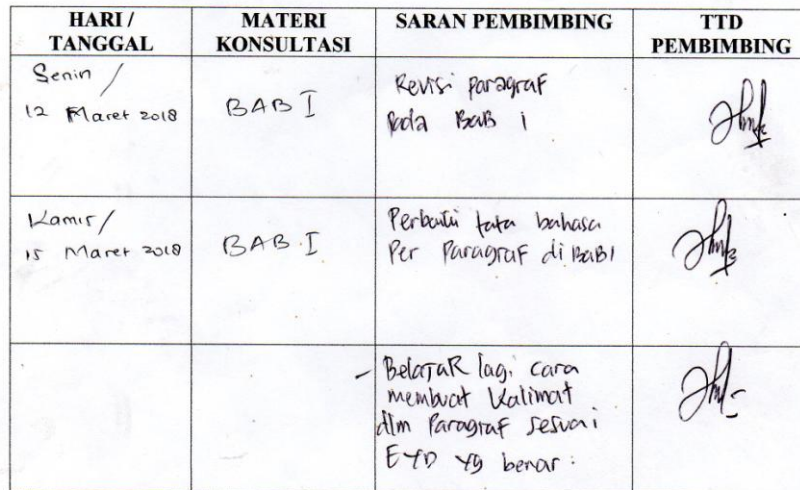 HARI /
TANGGAL
MATERI
KONSULTASI
SARAN PEMBIMBING
TTD
PEMBIMBING
Senin /
12 Maret 2018
BAB I
Revisi paragraf
pada Bab i
Kamis/
15 Maret 2018
BAB I
Perbaiki tata bahasa
Per Paragraf di BAB I
- BelajaR lagi cara
membuat Kalimat
dlm Paragraf sesuai
EYD yg benar.